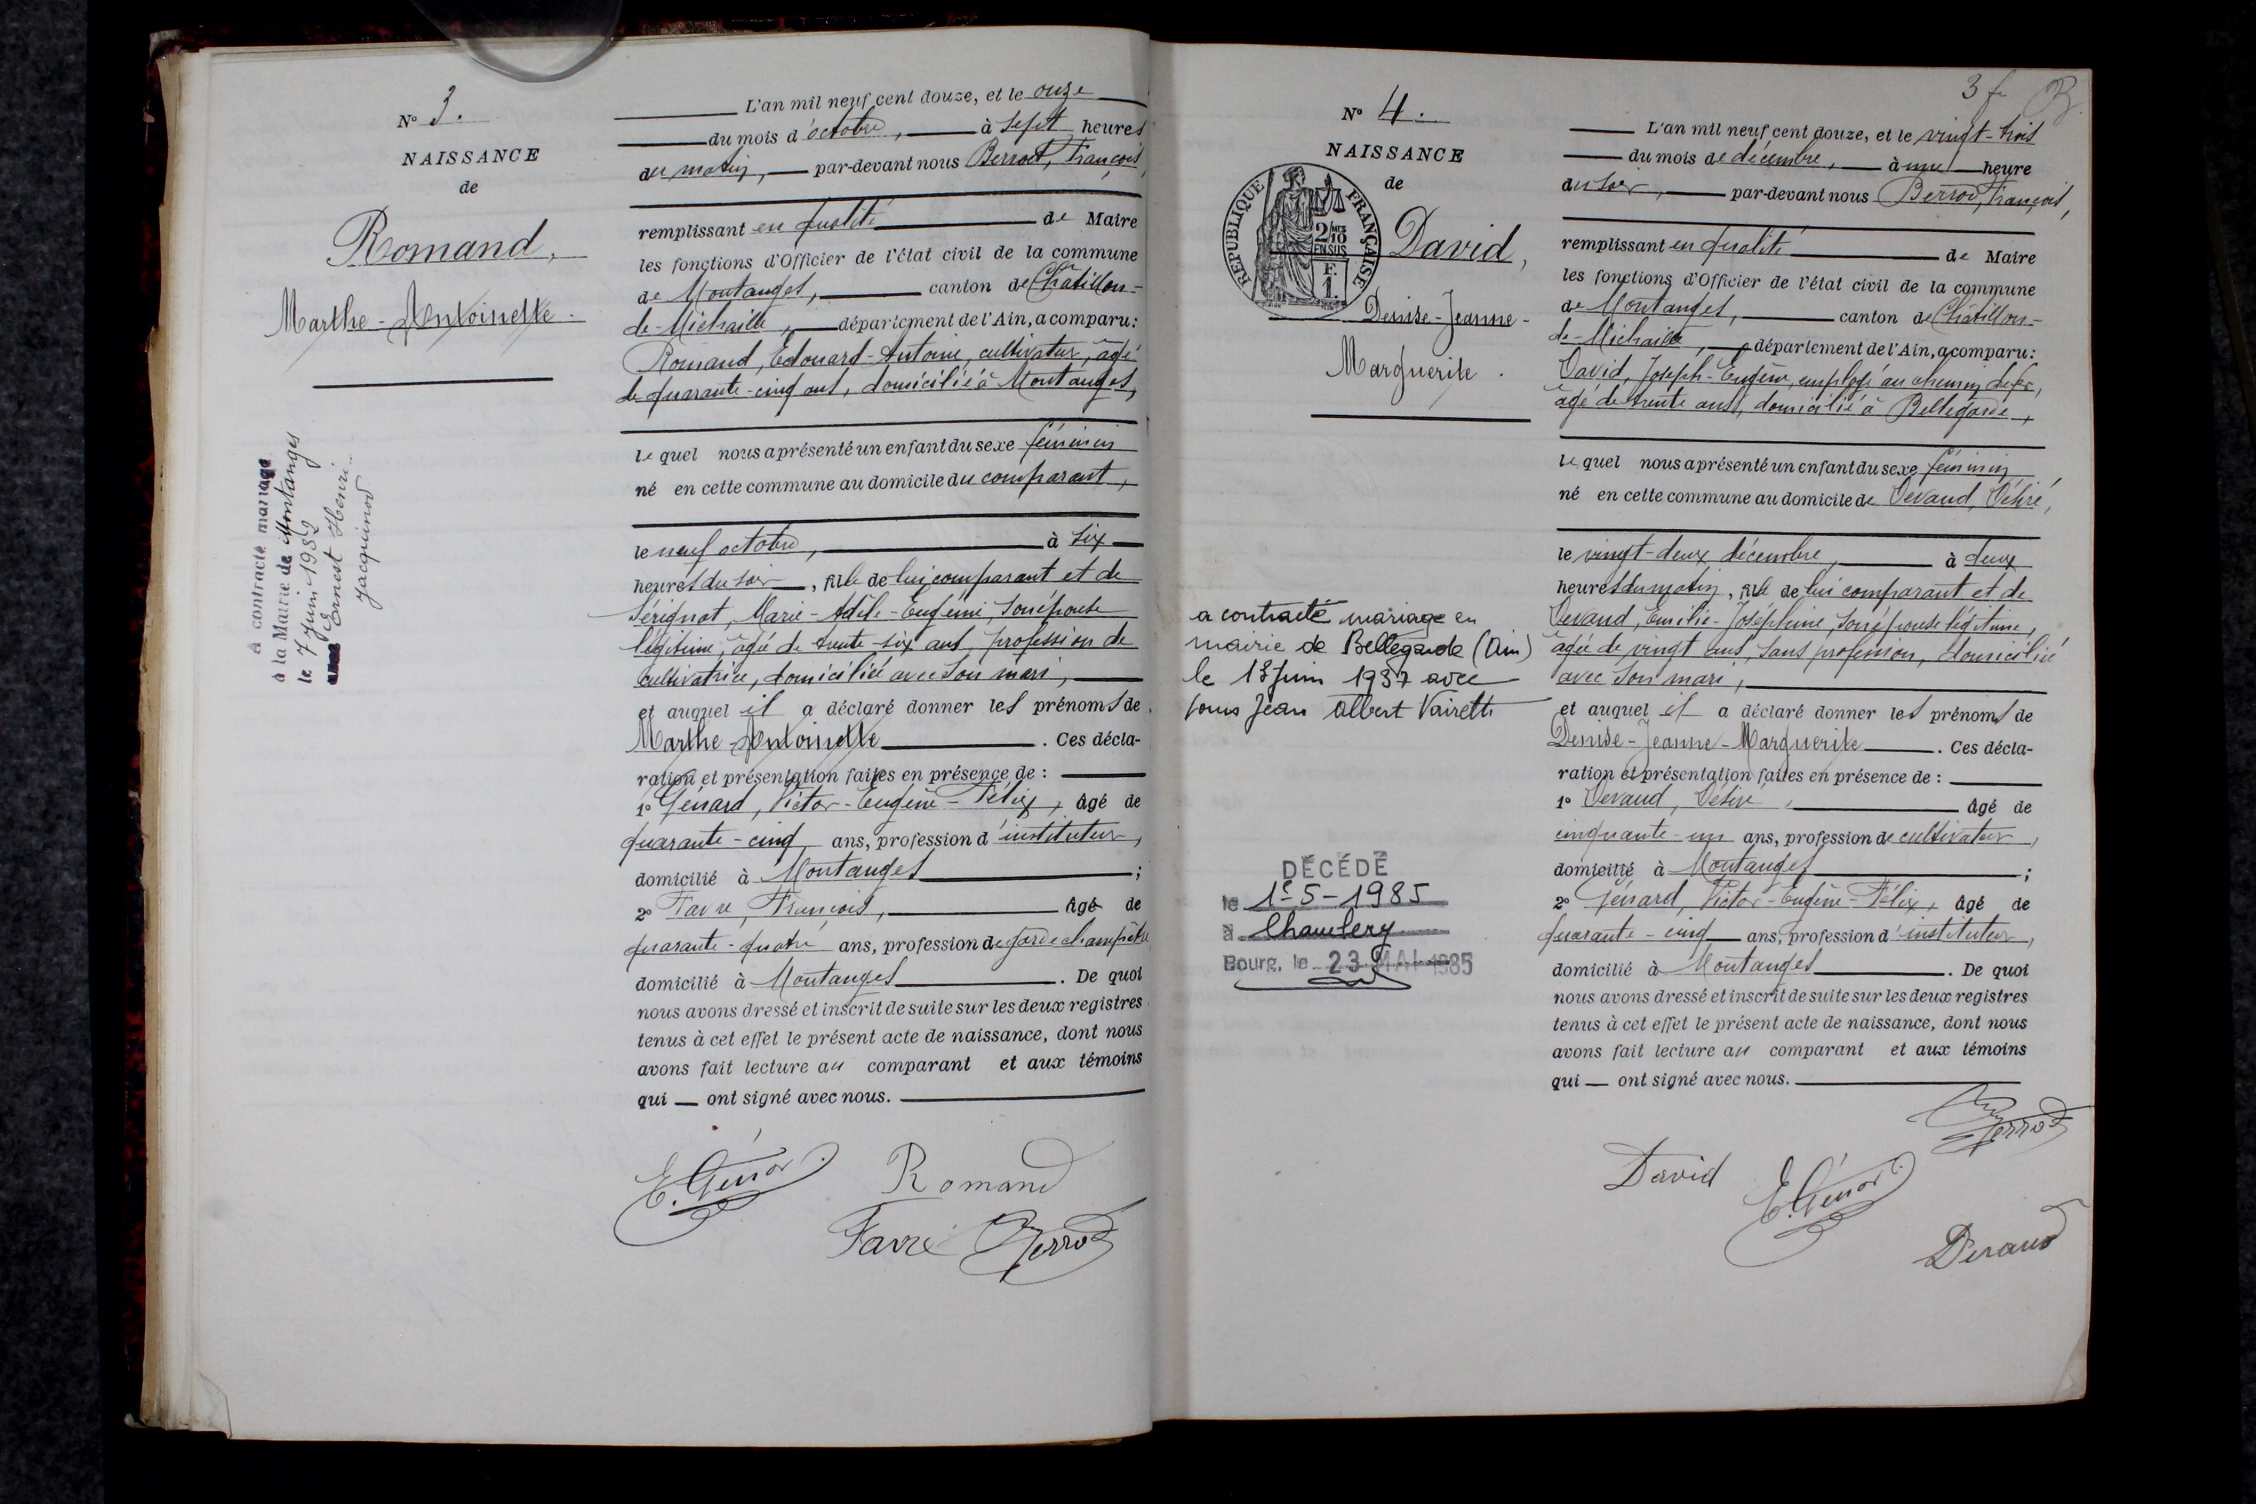 N° 3.
NAISSANCE
de
Romand,
Marthe-Antoinette.
A contracté mariage
à la Mairie de Montanges
le 7 juin 1932
avec Ernest Henri
Jacquinod
L'an mil neuf cent douze, et le onze
du mois d'octobre, à sept heures
du matin, par-devant nous Berrod, François,
remplissant en qualité de Maire
les fonctions d'Officier de l'état civil de la commune
de Montanges, canton de Châtillon-
de-Michaille, département de l'Ain, a comparu:
Romand, Edouard-Antoine, cultivateur, âgé
de quarante-cinq ans, domicilié à Montanges,
lequel nous a présenté un enfant du sexe féminin
né en cette commune au domicile du comparant,
le neuf octobre, à six
heures du soir, fille de lui comparant et de
Sérignat, Marie-Adèle-Eugénie, son épouse
légitime, âgée de trente-six ans, profession de
cultivatrice, domiciliée avec son mari,
et auquel il a déclaré donner les prénoms de
Marthe-Antoinette. Ces décla-
ration et présentation faites en présence de :
1° Génard, Victor-Eugène-Félix, âgé de
quarante-cinq ans, profession d'instituteur,
domicilié à Montanges;
2° Favre, François, âgé de
quarante-quatre ans, profession de garde champêtre
domicilié à Montanges. De quoi
nous avons dressé et inscrit de suite sur les deux registres
tenus à cet effet le présent acte de naissance, dont nous
avons fait lecture au comparant et aux témoins
qui ont signé avec nous.
E. Génard
Romand
Favre Berrod
3 f.
N° 4.
NAISSANCE
de
RÉPUBLIQUE FRANÇAISE
2/10 MES
EN SUS
F.
1.
David,
Denise-Jeanne-
Marguerite.
a contracté mariage en
mairie de Bellegarde (Ain)
le 1er juin 1937 avec
Jean Albert Vairetti
DÉCÉDÉ
le 1er-5-1985
à Chambéry
Bourg, le 23 MAI 1985
L'an mil neuf cent douze, et le vingt-trois
du mois de décembre, à une heure
du soir, par-devant nous Berrod, François,
remplissant en qualité de Maire
les fonctions d'Officier de l'état civil de la commune
de Montanges, canton de Châtillon-
de-Michaille, département de l'Ain, a comparu:
David, Joseph-Eugène, employé au chemin de fer,
âgé de trente ans, domicilié à Bellegarde,
lequel nous a présenté un enfant du sexe féminin
né en cette commune au domicile de Devaud, Désiré,
le vingt-deux décembre, à deux
heures du matin, fille de lui comparant et de
Devaud, Emilie-Joséphine, son épouse légitime,
âgée de vingt ans, sans profession, domiciliée
avec son mari,
et auquel il a déclaré donner les prénoms de
Denise-Jeanne-Marguerite. Ces décla-
ration et présentation faites en présence de :
1° Devaud, Désiré, âgé de
cinquante-un ans, profession de cultivateur,
domicilié à Montanges;
2° Génard, Victor-Eugène-Félix, âgé de
quarante-cinq ans, profession d'instituteur,
domicilié à Montanges. De quoi
nous avons dressé et inscrit de suite sur les deux registres
tenus à cet effet le présent acte de naissance, dont nous
avons fait lecture au comparant et aux témoins
qui ont signé avec nous.
Berrod
David E. Génard
Devaud